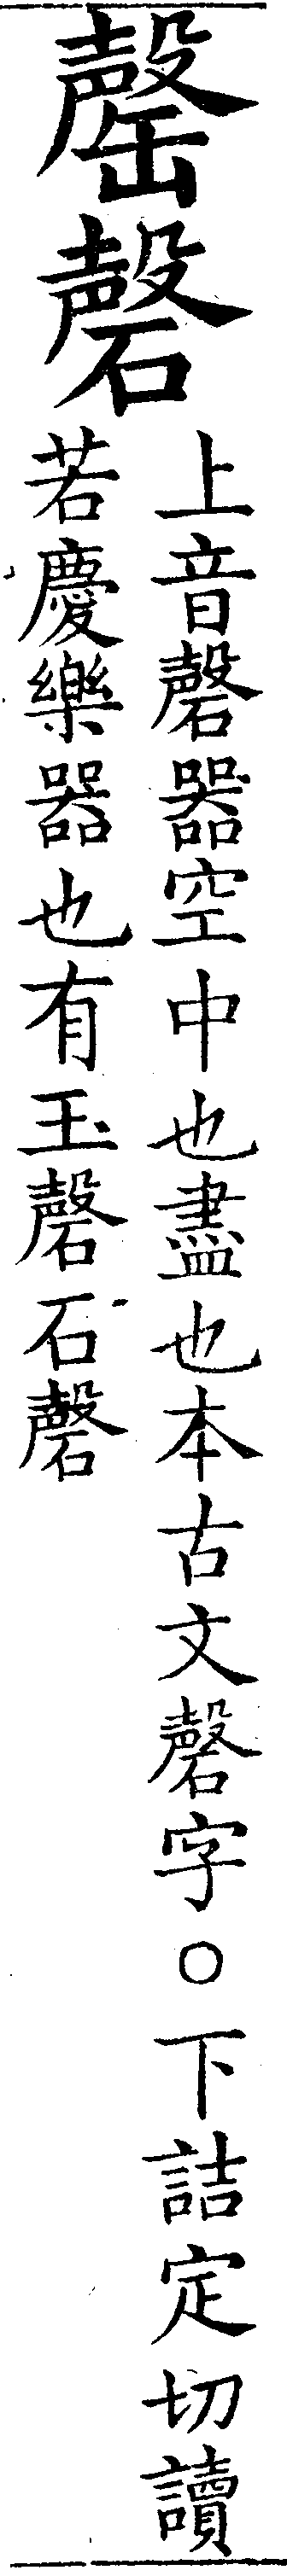 罄磬
上音磬器空中也盡也本古文磬字○下詰定切讀
若慶樂器也有玉磬石磬